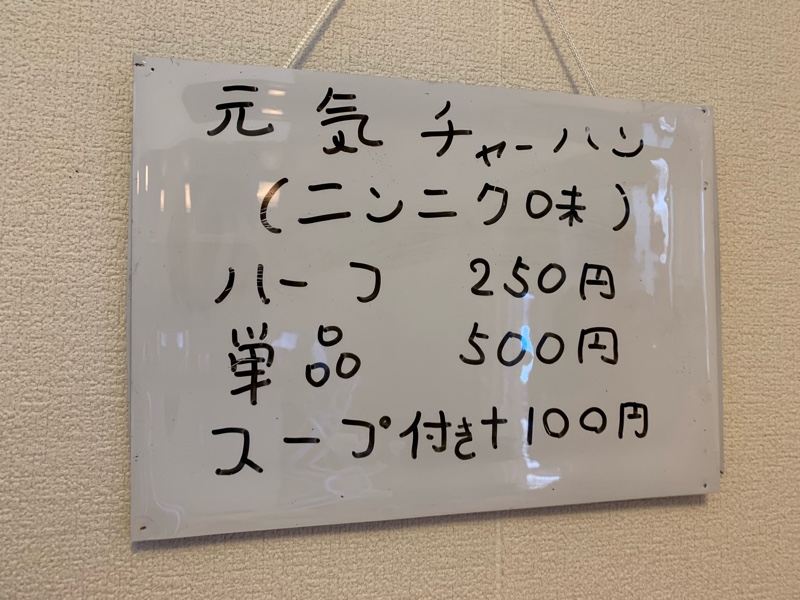 元気チャーハン
(ニンニク味)
ハーフ 250円
単品 500円
スープ付き+100円